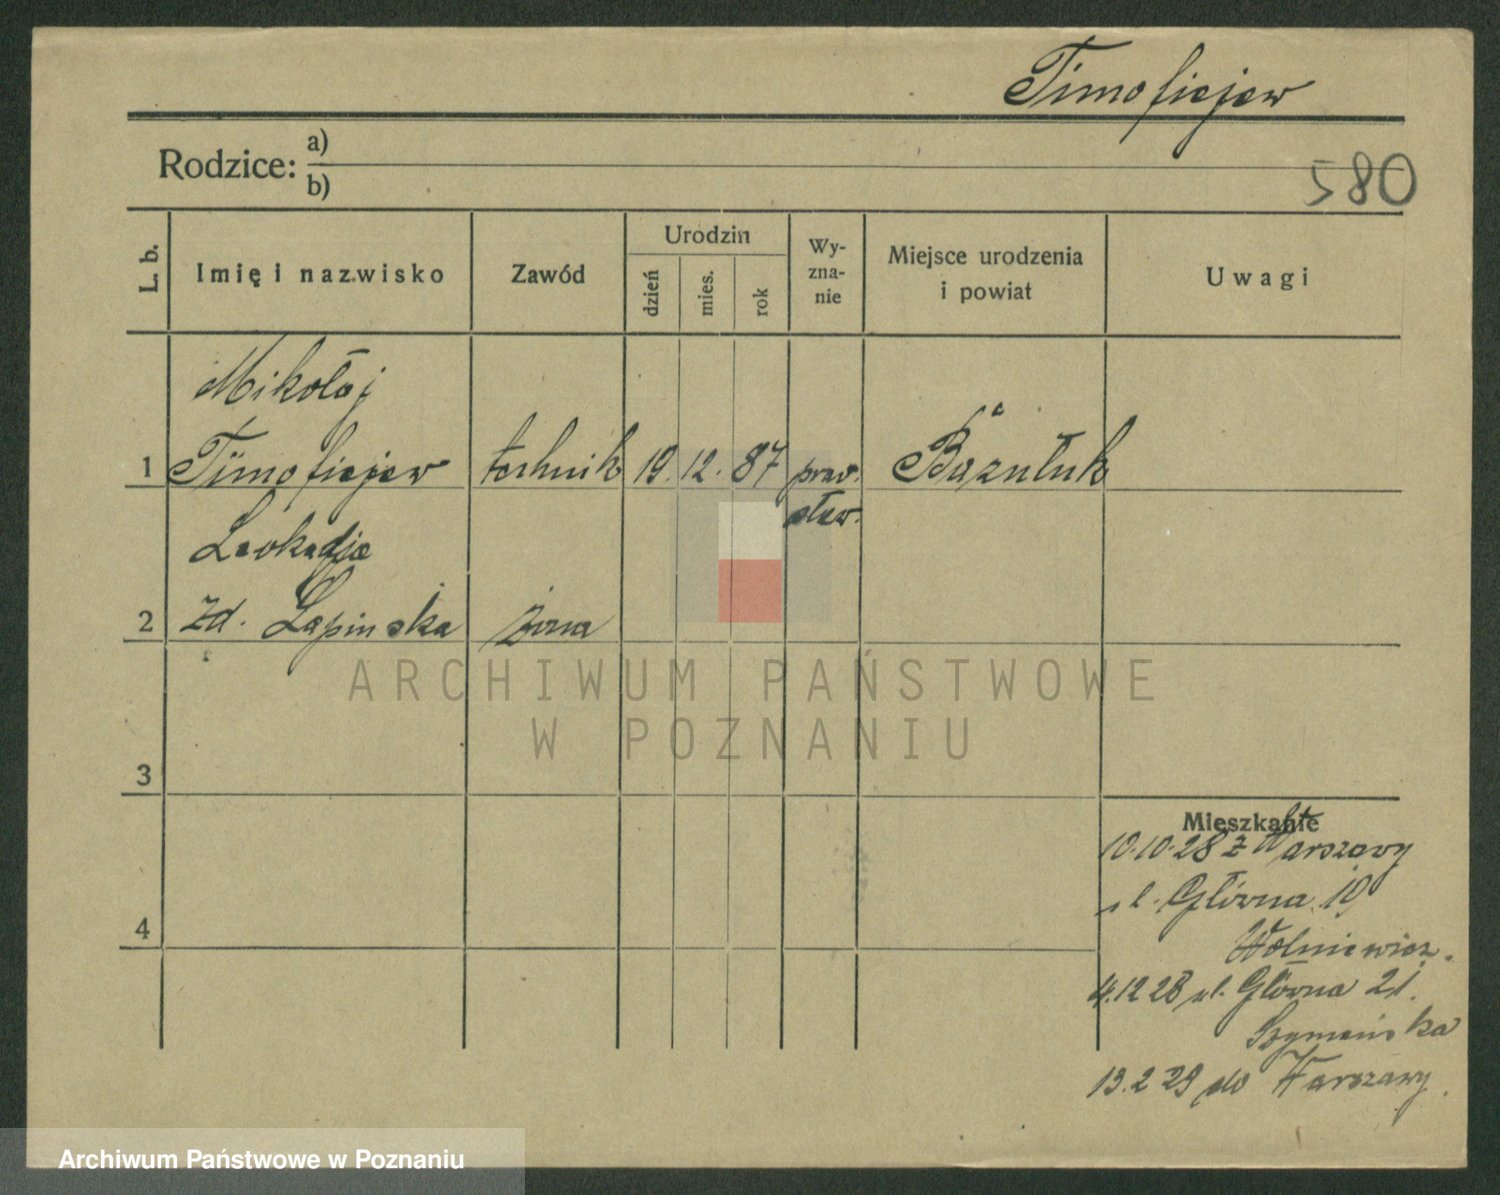 Timofiejew
Rodzice: a)
b)
580
L. b.
Imię i nazwisko
Zawód
Urodzin
dzień
mies.
rok
Wy-
zna-
nie
Miejsce urodzenia
i powiat
Uwagi
Mikołaj
1 Timofiejew technik 19. 12. 87 praw. Buzułuk
sław.
Leokadja
2 zd. Łapinska żona
3
Mieszkanie
10.10.28 z Warszawy
ul. Główna 19
4
Wolniewicz.
4.12 28 ul. Główna 21.
Szymańska
13.2 29 do Warszawy.
ARCHIWUM PAŃSTWOWE
W POZNANIU
Archiwum Państwowe w Poznaniu